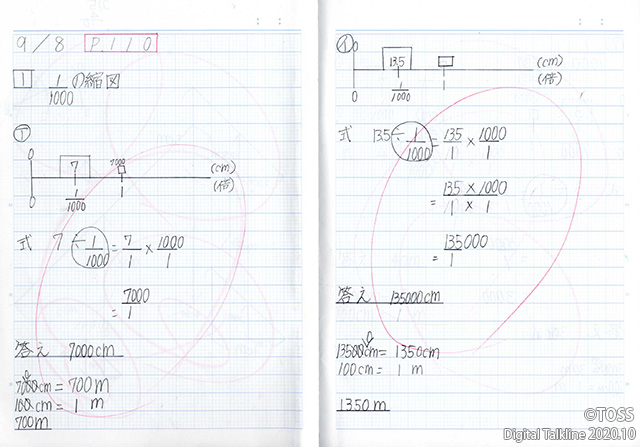 9/8 P.110
1 1/1000の縮図
ア
0 7 7000 (cm)
0 1/1000 1 (倍)
式 7÷1/1000=7/1×1000/1
=7000/1
答え 7000cm
7000cm=700m
100cm=1m
700m
イ
0 13.5 (cm)
0 1/1000 1 (倍)
式 135÷1/1000=135/1×1000/1
=135×1000/1×1
=135000/1
答え 135000cm
13500cm=1350cm
100cm=1m
1350m
©TOSS
Digital Talkline 2020.10